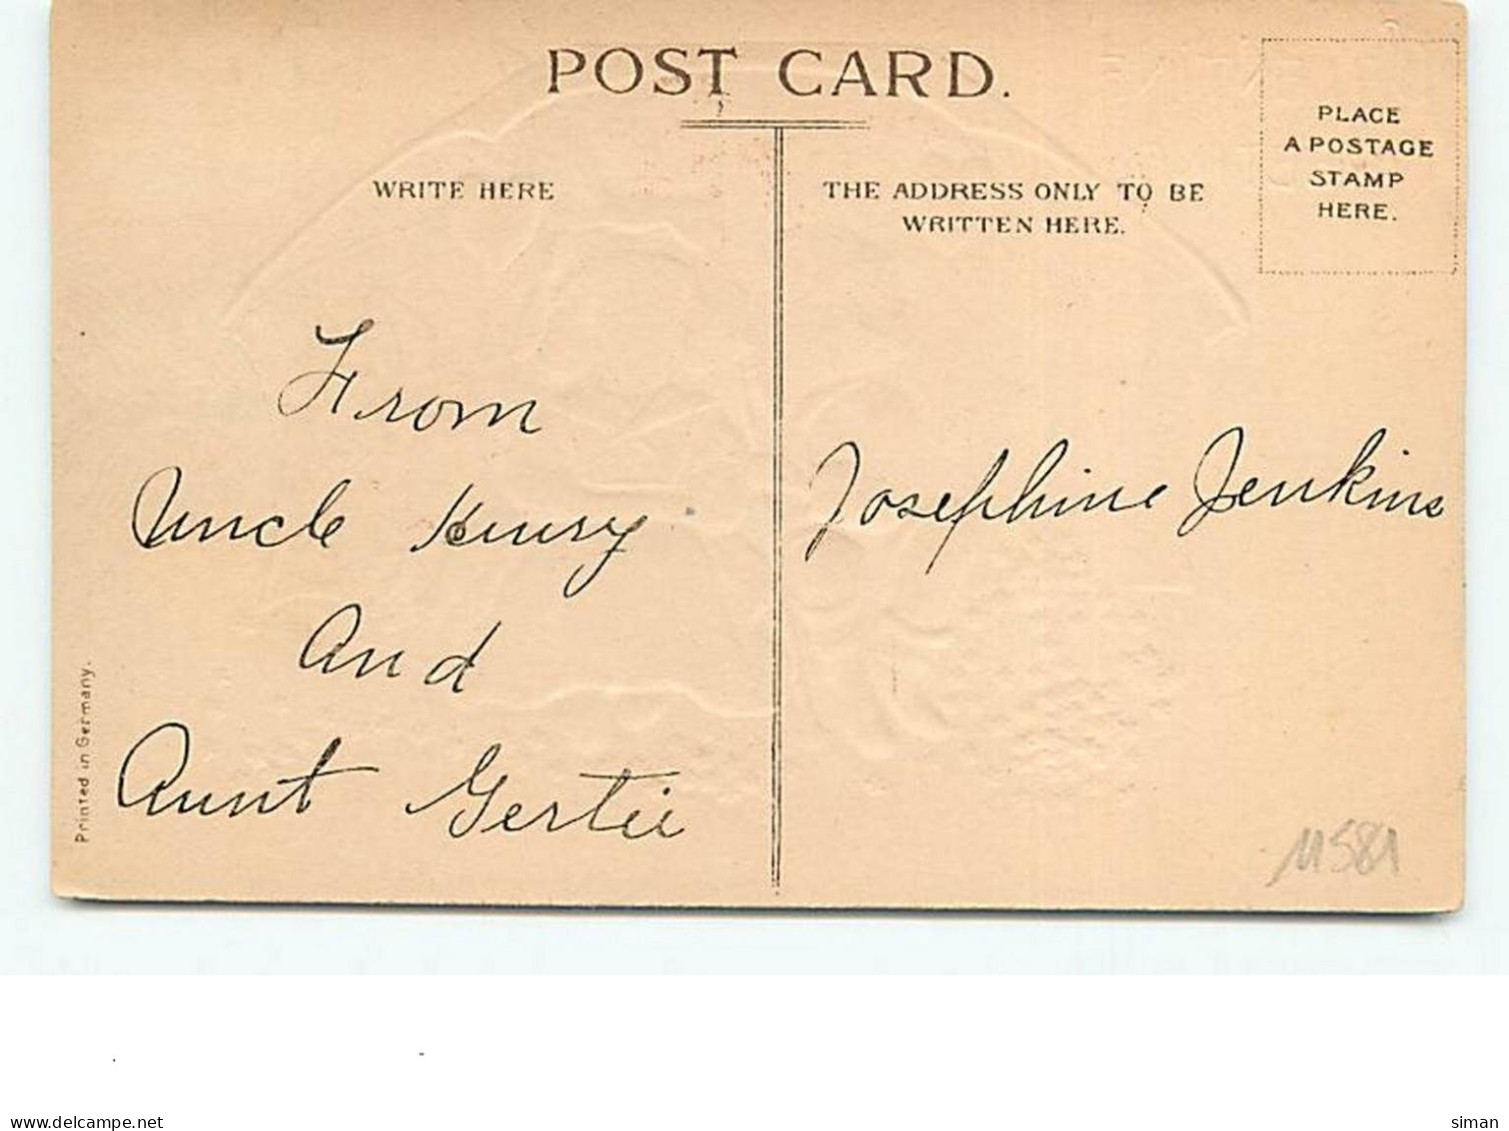 POST CARD.
WRITE HERE
THE ADDRESS ONLY TO BE
WRITTEN HERE.
PLACE
A POSTAGE
STAMP
HERE.
From
Uncle Henry
And
Aunt Gertie
Josephine Jenkins
Printed in Germany.
11581
delcampe.net
siman